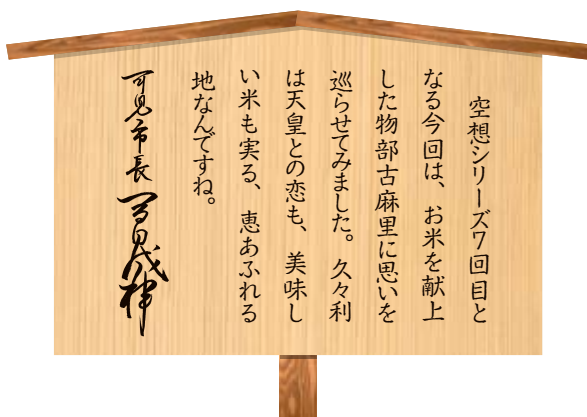 空想シリーズ7回目と
なる今回は、お米を献上
した物部古麻里に思いを
巡らせてみました。久々利
は天皇との恋も、美味し
い米も実る、恵あふれる
地なんですね。
可児市長